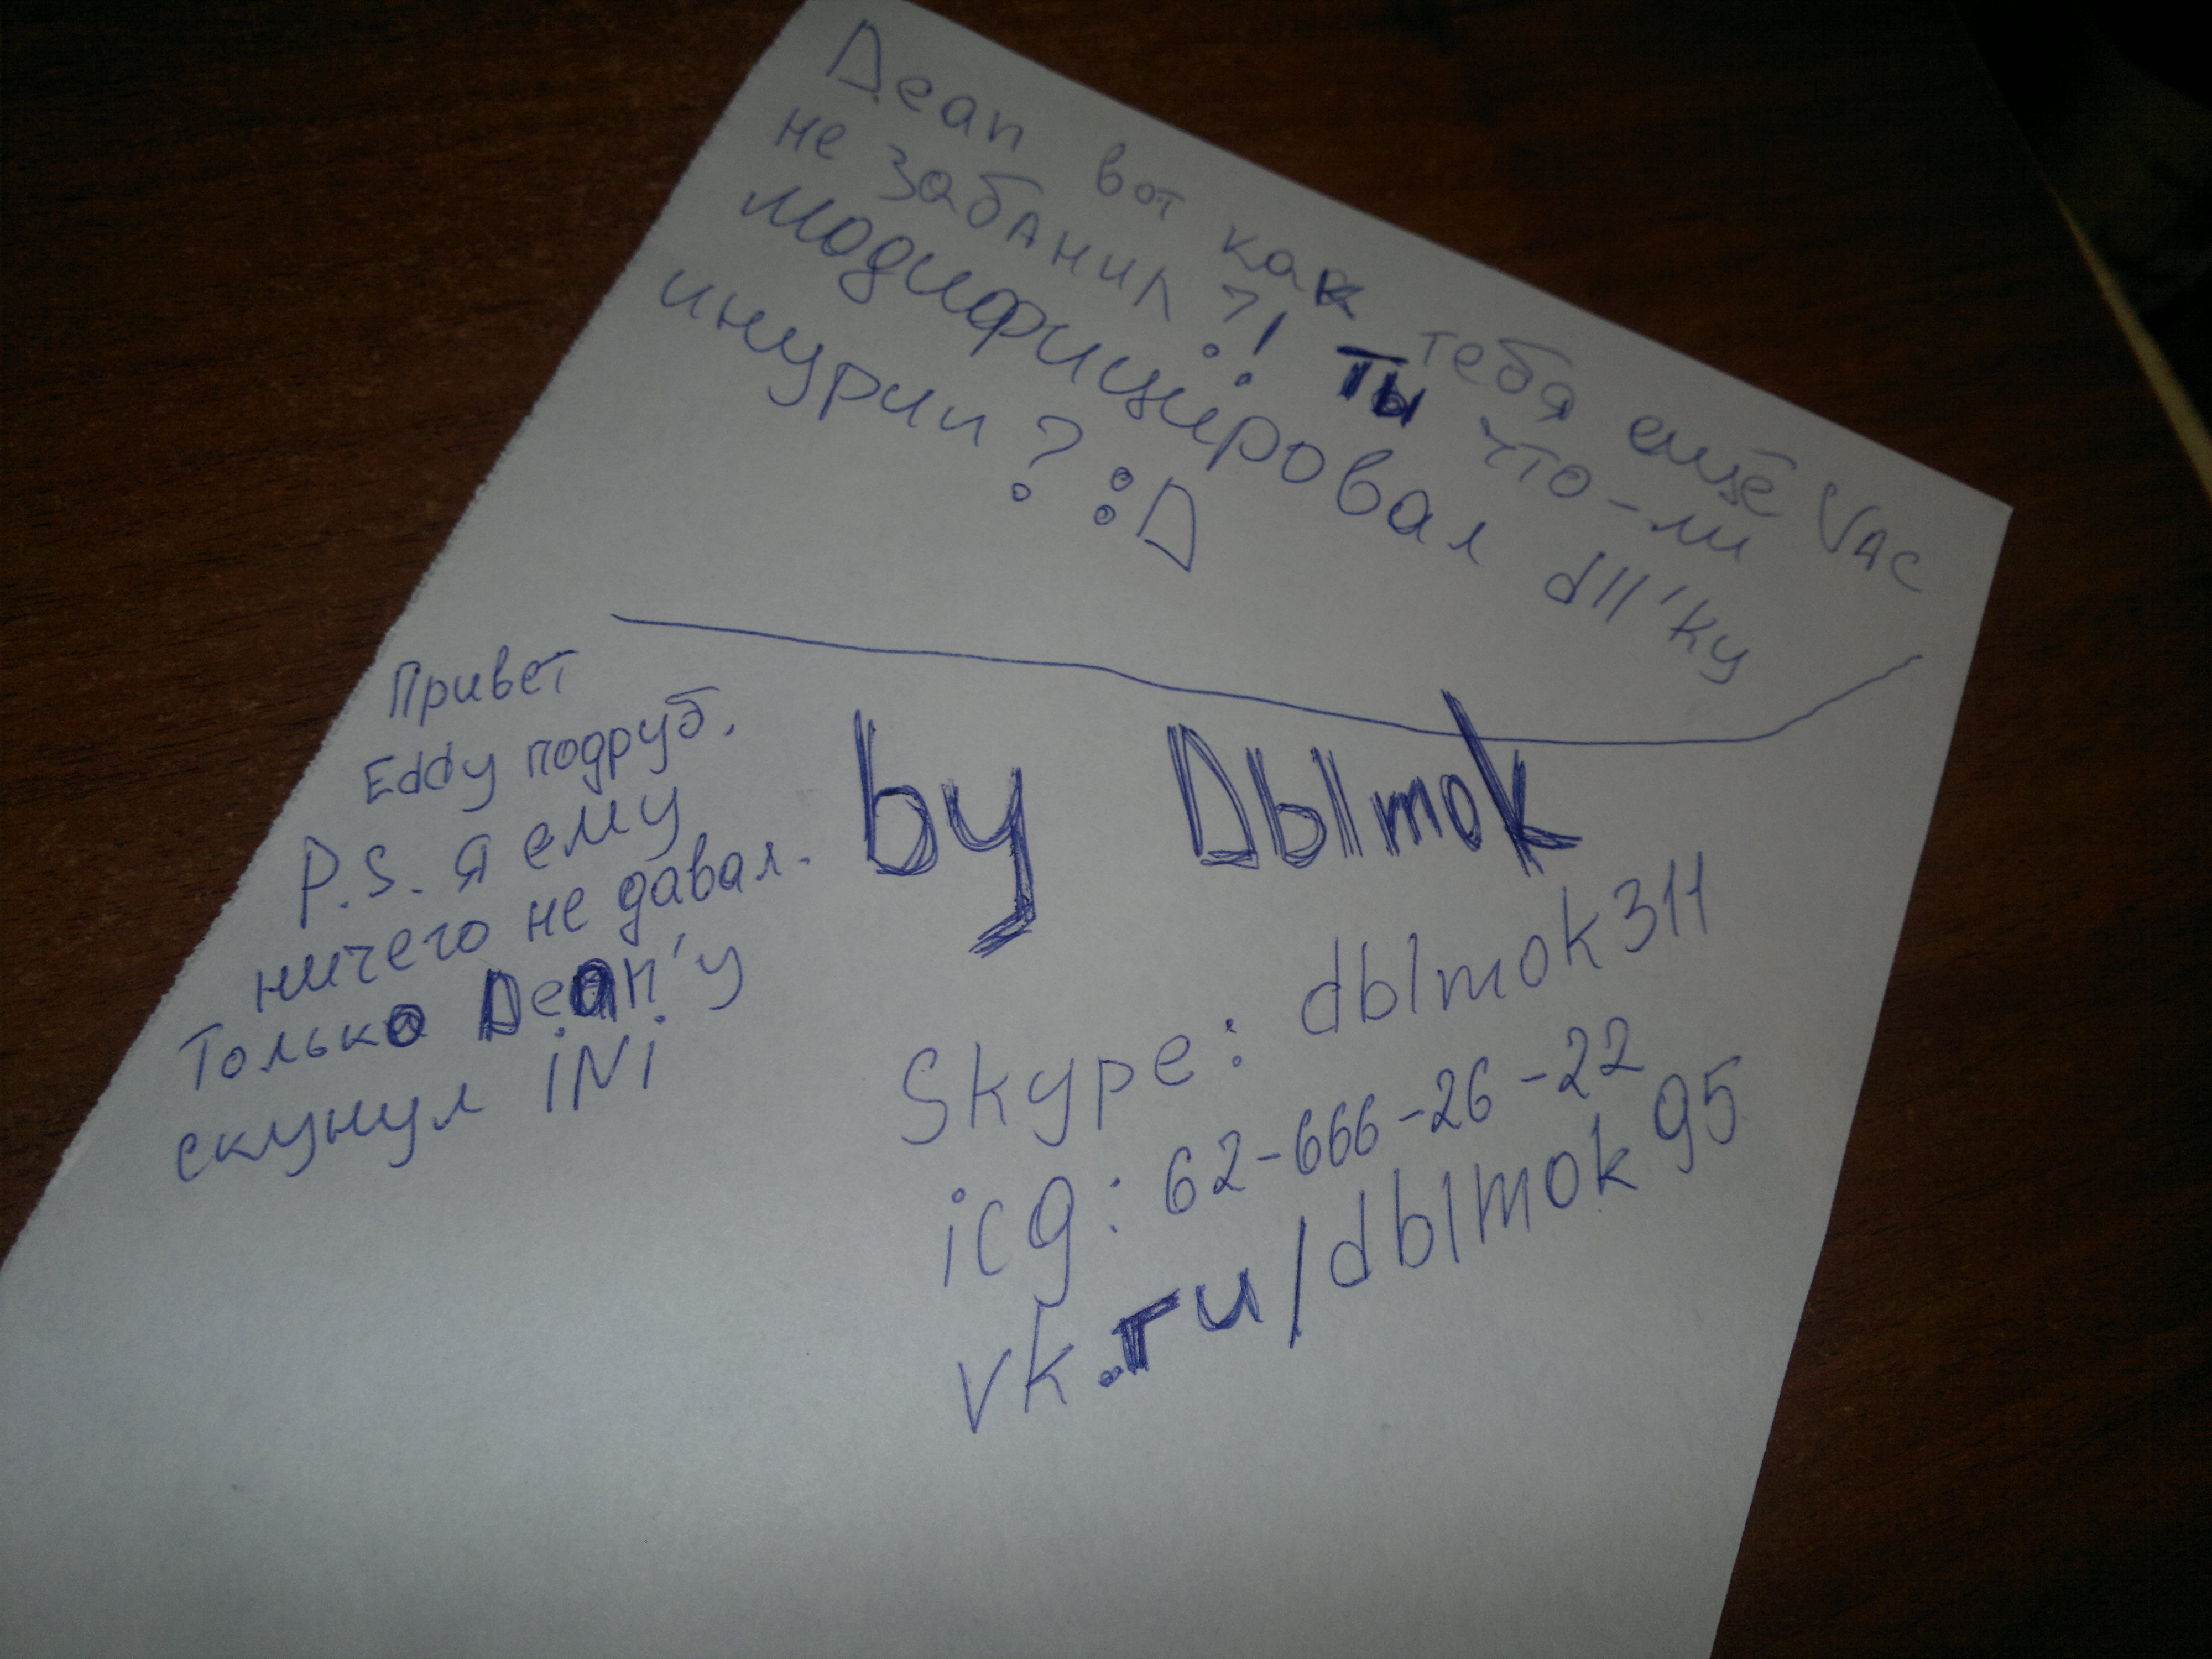 Dean вот как тебя ещё VAC
не забанил?! Ты что-ли
модифицировал dll'ky
инурии? :D
Привет
Eddy подруб.
P.S. я ему
ничего не давал.
Только Dean'у
скунул iNi
by Dblmok
Skype: dblmok311
icq: 62-666-26-22
vk.ru/dblmok95